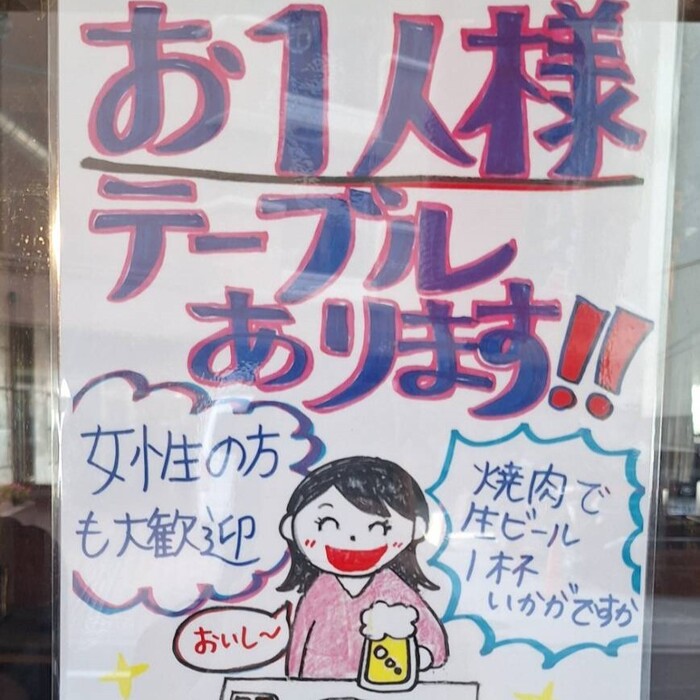 お1人様
テーブル
あります!!
女性の方
も大歓迎
焼肉で
生ビール
1杯
いかがですか
おいし〜